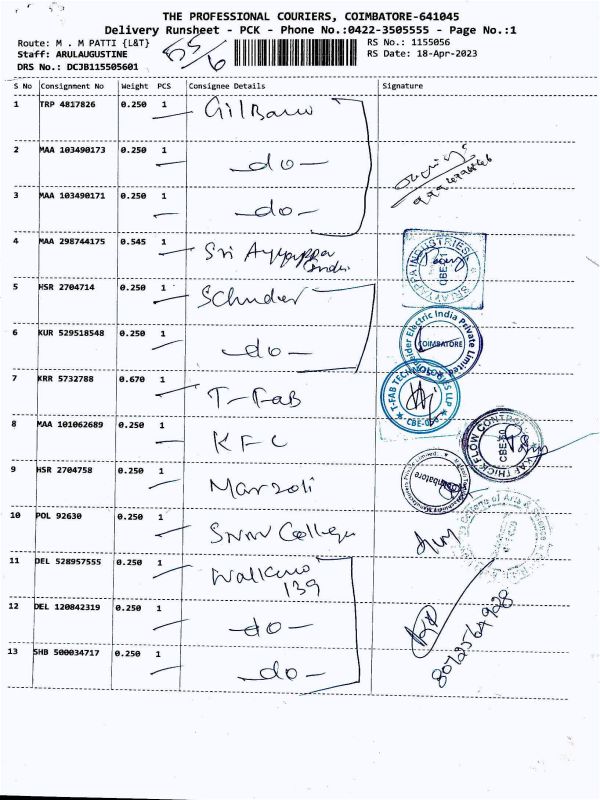 THE PROFESSIONAL COURIERS, COIMBATORE-641045
Delivery Runsheet - PCK - Phone No.:0422-3505555 - Page No.:1
Route: M . M PATTI {L&T} RS No.: 1155056
Staff: ARULAUGUSTINE RS Date: 18-Apr-2023
DRS No.: DCJB115505601
55/6
S No Consignment No Weight PCS Consignee Details Signature
1 TRP 4817826 0.250 1
2 MAA 103490173 0.250 1 -do-
3 MAA 103490171 0.250 1 -do-
4 MAA 298744175 0.545 1 Sri Ayyappa
SRI AYYAPPA INDUSTRIES
5 HSR 2704714 0.250 1
6 KUR 529518548 0.250 1 -do-
Electric India Private Limited
COIMBATORE
7 KRR 5732788 0.670 1 T-Fab
T-FAB TECHNOLOGIES LLP
8 MAA 101062689 0.250 1 KFC
FLOW CONTROL
9 HSR 2704758 0.250 1 Marzoli
Coimbatore
10 POL 92630 0.250 1 SNMV College
College of Arts & Science
11 DEL 528957555 0.250 1
139
12 DEL 120842319 0.250 1 -do-
13 SHB 500034717 0.250 1 -do-